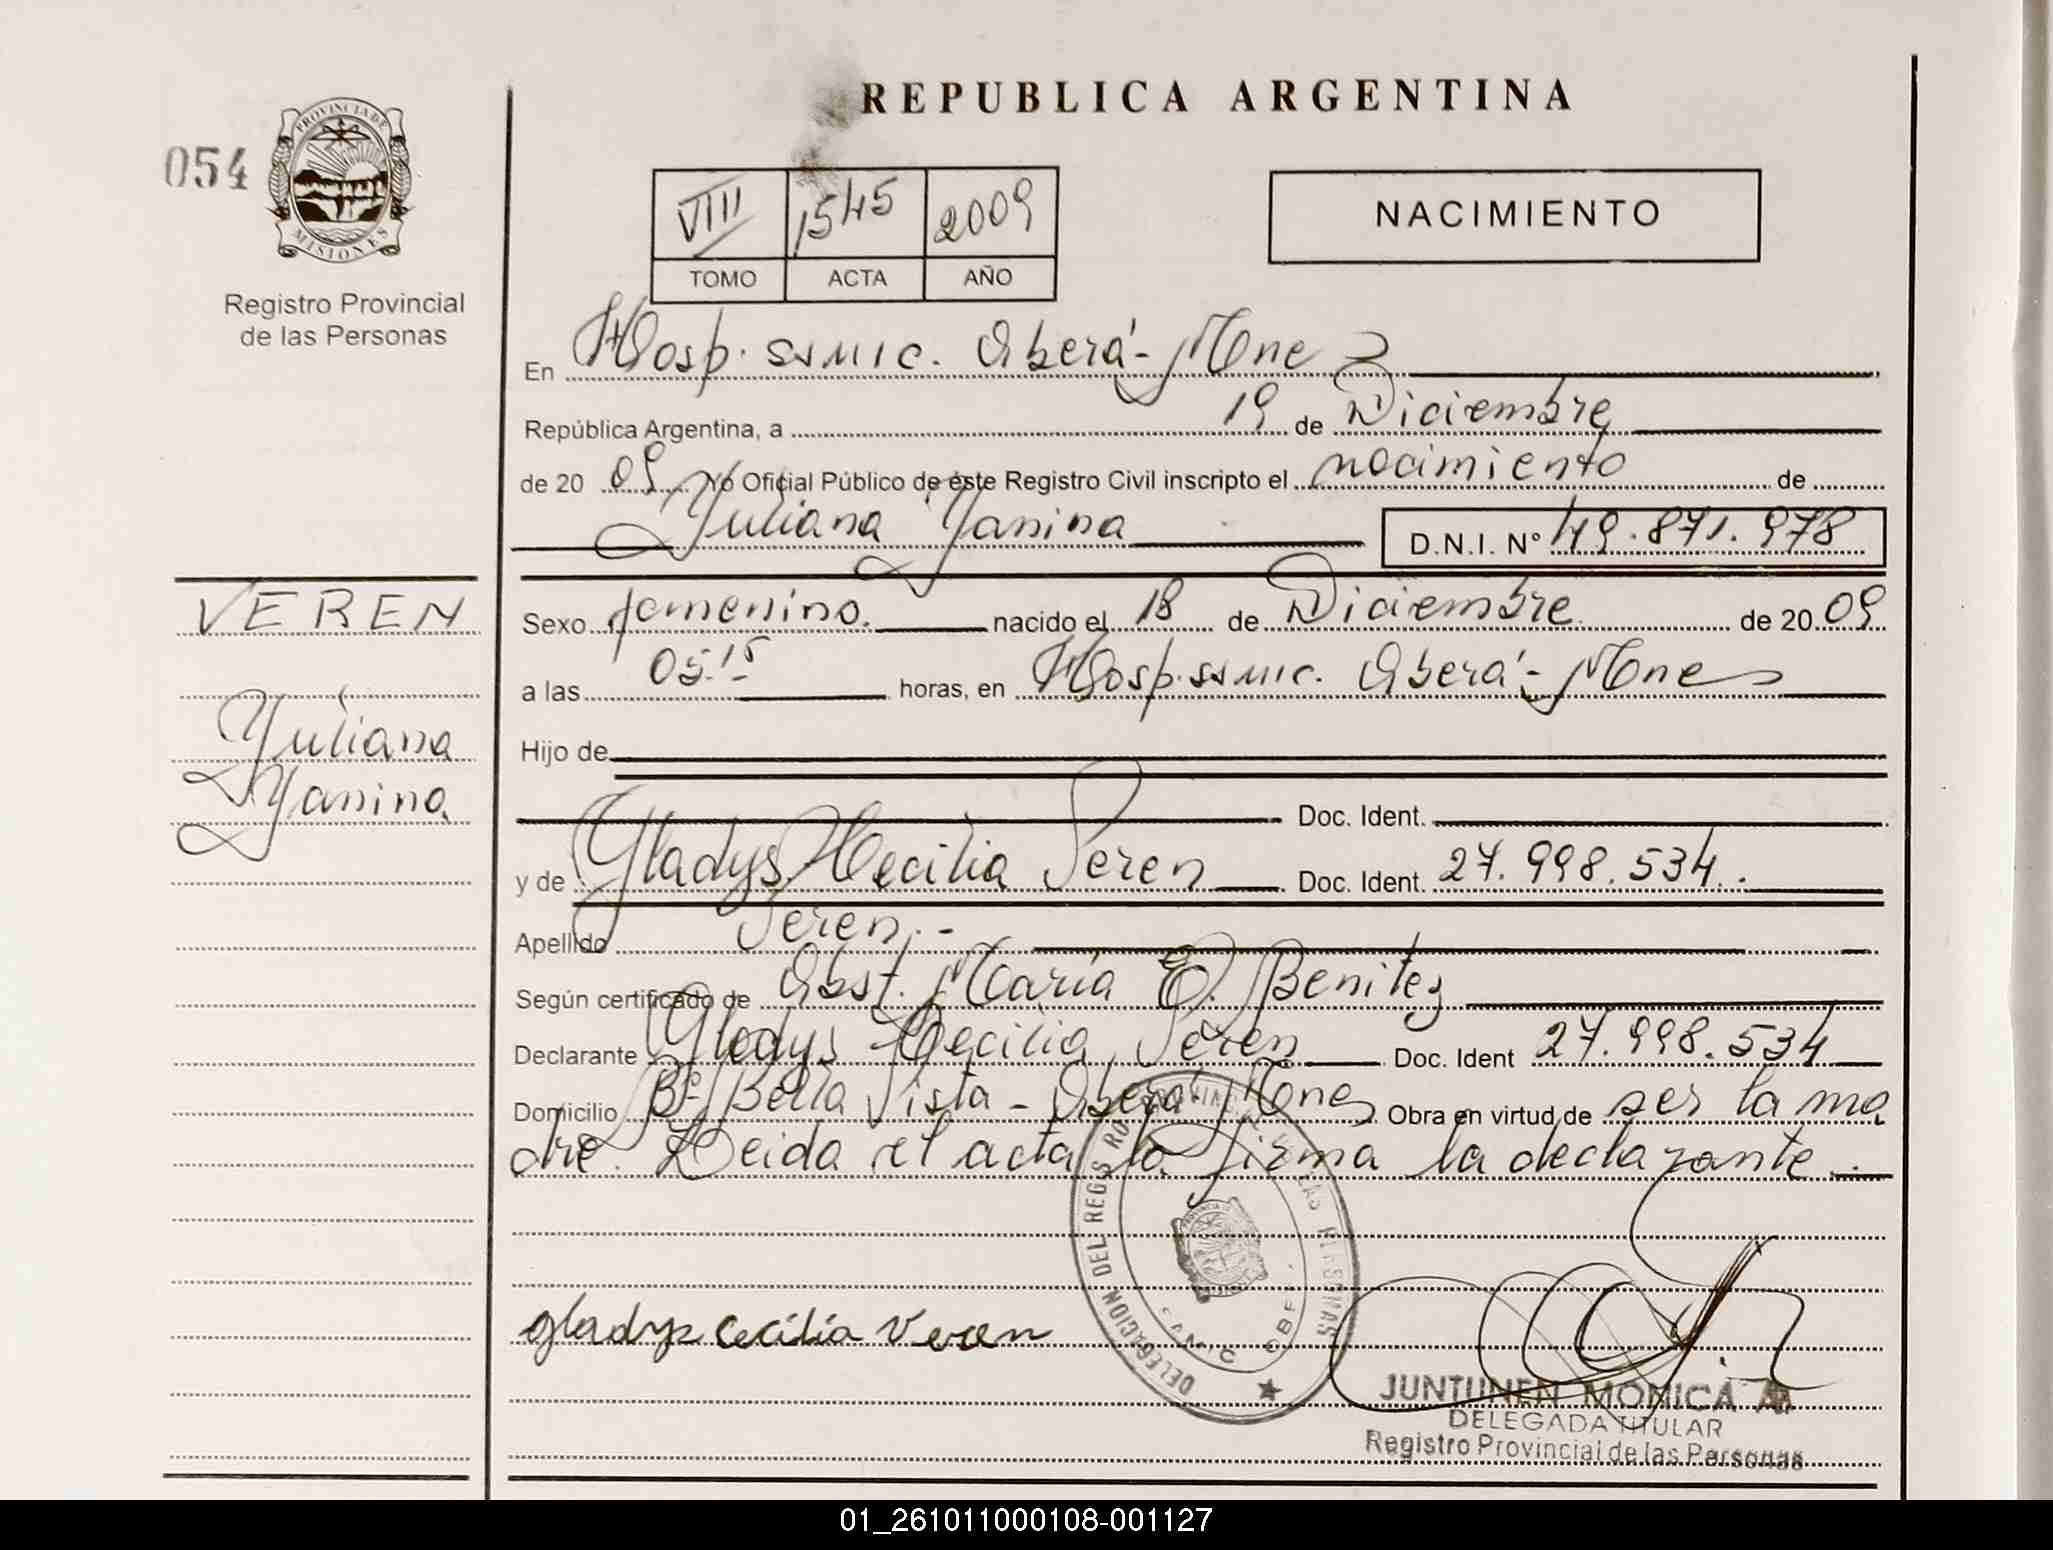 REPUBLICA ARGENTINA
054
PROVINCIA DE
MISIONES
Registro Provincial
de las Personas
VIII 1545 2009
TOMO ACTA AÑO
NACIMIENTO
En Hosp. SAMIC. Oberá - Mnes
República Argentina, a 19 de Diciembre
de 20 09 Yo Oficial Público de éste Registro Civil inscripto el nacimiento de
Yuliana Yanina D.N.I. Nº 49.871.978
VEREN
Yuliana
Yanina
Sexo femenino. nacido el 18 de Diciembre de 20 09
a las 05:15 horas, en Hosp. SAMIC. Oberá - Mnes
Hijo de
Doc. Ident.
y de Gladys Cecilia Veren Doc. Ident. 27.998.534.
Apellido Veren.-
Según certificado de Obst. María E. Benitez
Declarante Gladys Cecilia Veren Doc. Ident 27.998.534
Domicilio Bº Bella Vista - Oberá - Mnes Obra en virtud de ser la ma
dre. Leida el acta la firma la declarante.
DELEGACION DEL REGIS RO PROVINCIAL DE LAS PERSONAS
SAMIC OBERA
gladys cecilia veren
JUNTUNEN MONICA A
DELEGADA TITULAR
Registro Provincial de las Personas
01_261011000108-001127